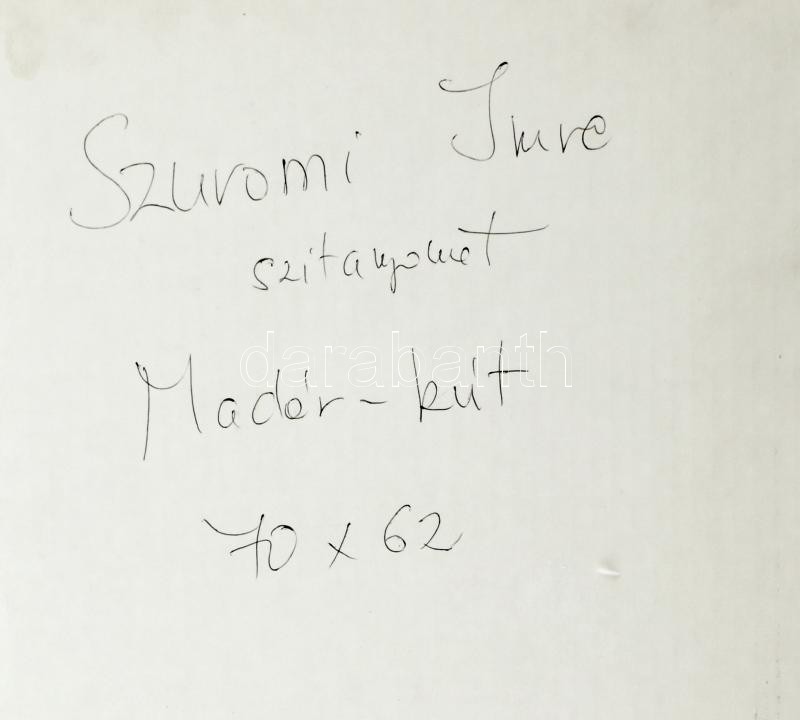 Szuromi Imre
szitanyomat
darabanth
Madár-kút
70 x 62